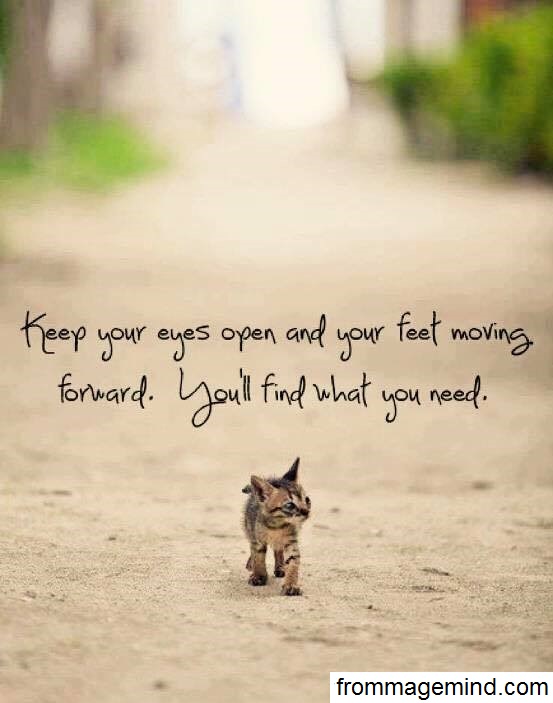 Keep your eyes open and your feet moving
forward. You'll find what you need.
frommagemind.com